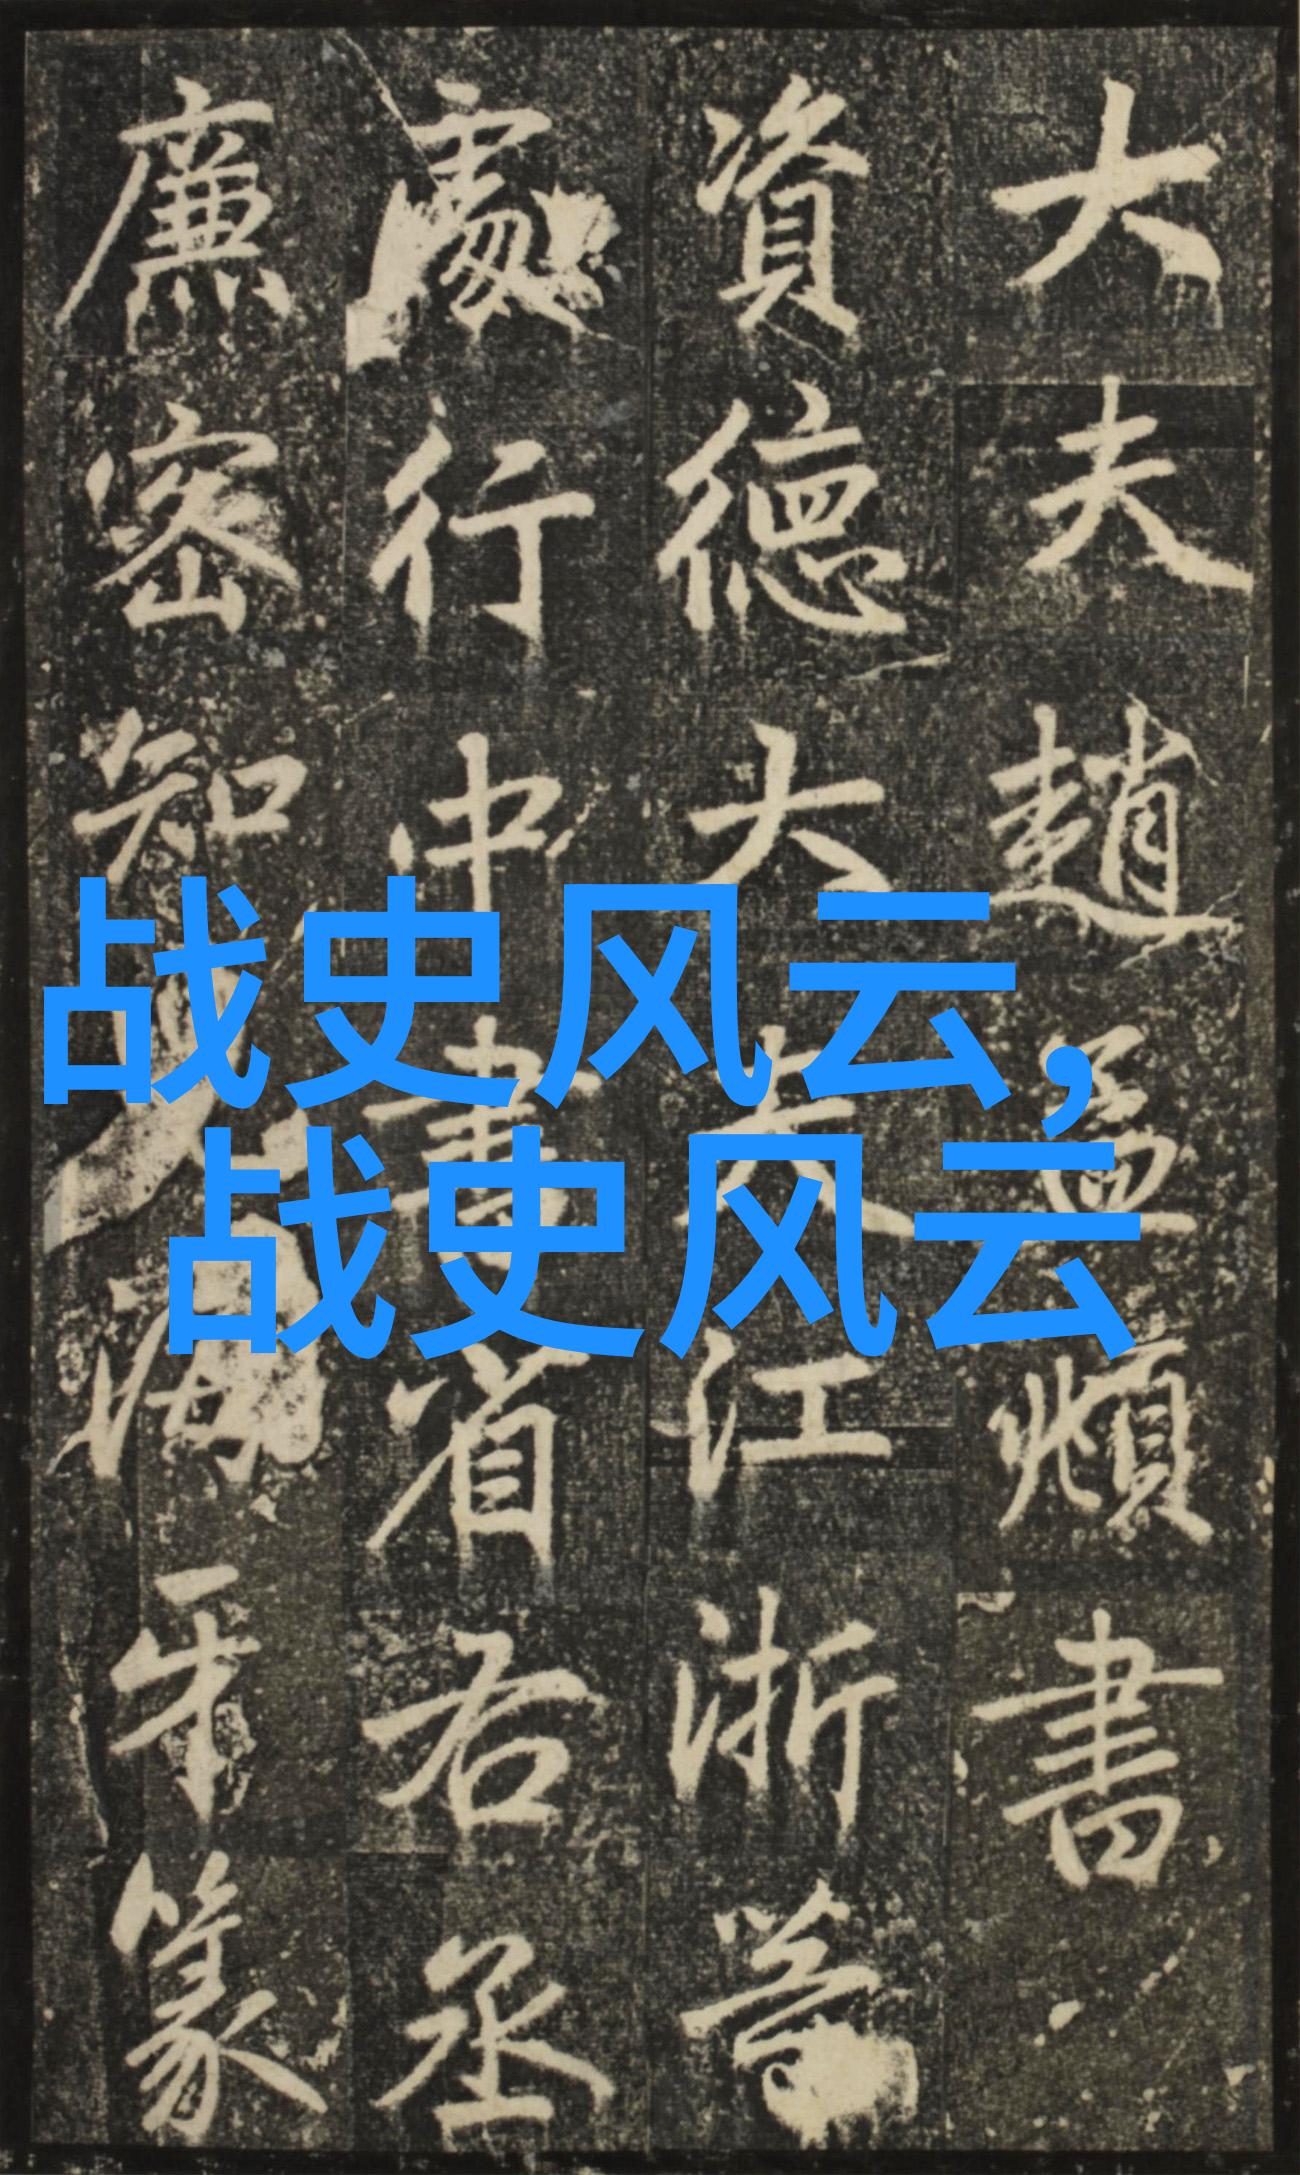 大夫趙孟頫書
資德大夫江浙等
處行中書省右丞
廉密知
牙篆
战史风云,
战史风云